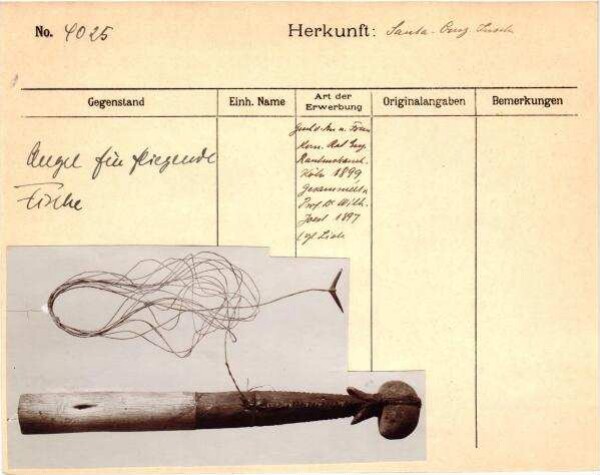 No. 4025
Herkunft: Santa-Cruz Inseln
Gegenstand
Einh. Name
Art der Erwerbung
Originalangaben
Bemerkungen
Angel für fliegende
Fische
Gesch. d. u. Frau
Kom. Rat Eug.
Rautenstrauch.
Köln 1899
Gesammelt v.
Prof Dr Wilh.
Joest 1897